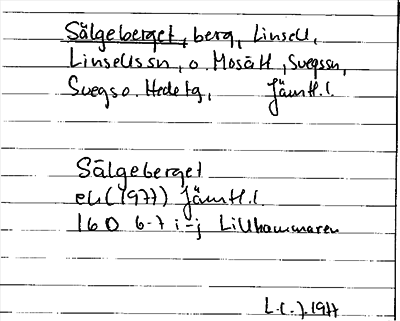 Sälgeberget, berg, Linsell,
Linsells sn, o. Mosätt, Svegs sn,
Svegs o. Hede tg, Jämtl. l.
Sälgeberget
ek (1977) Jämtl. l
16 D 6-7 i-j Lillhammaren
L.(.).1977